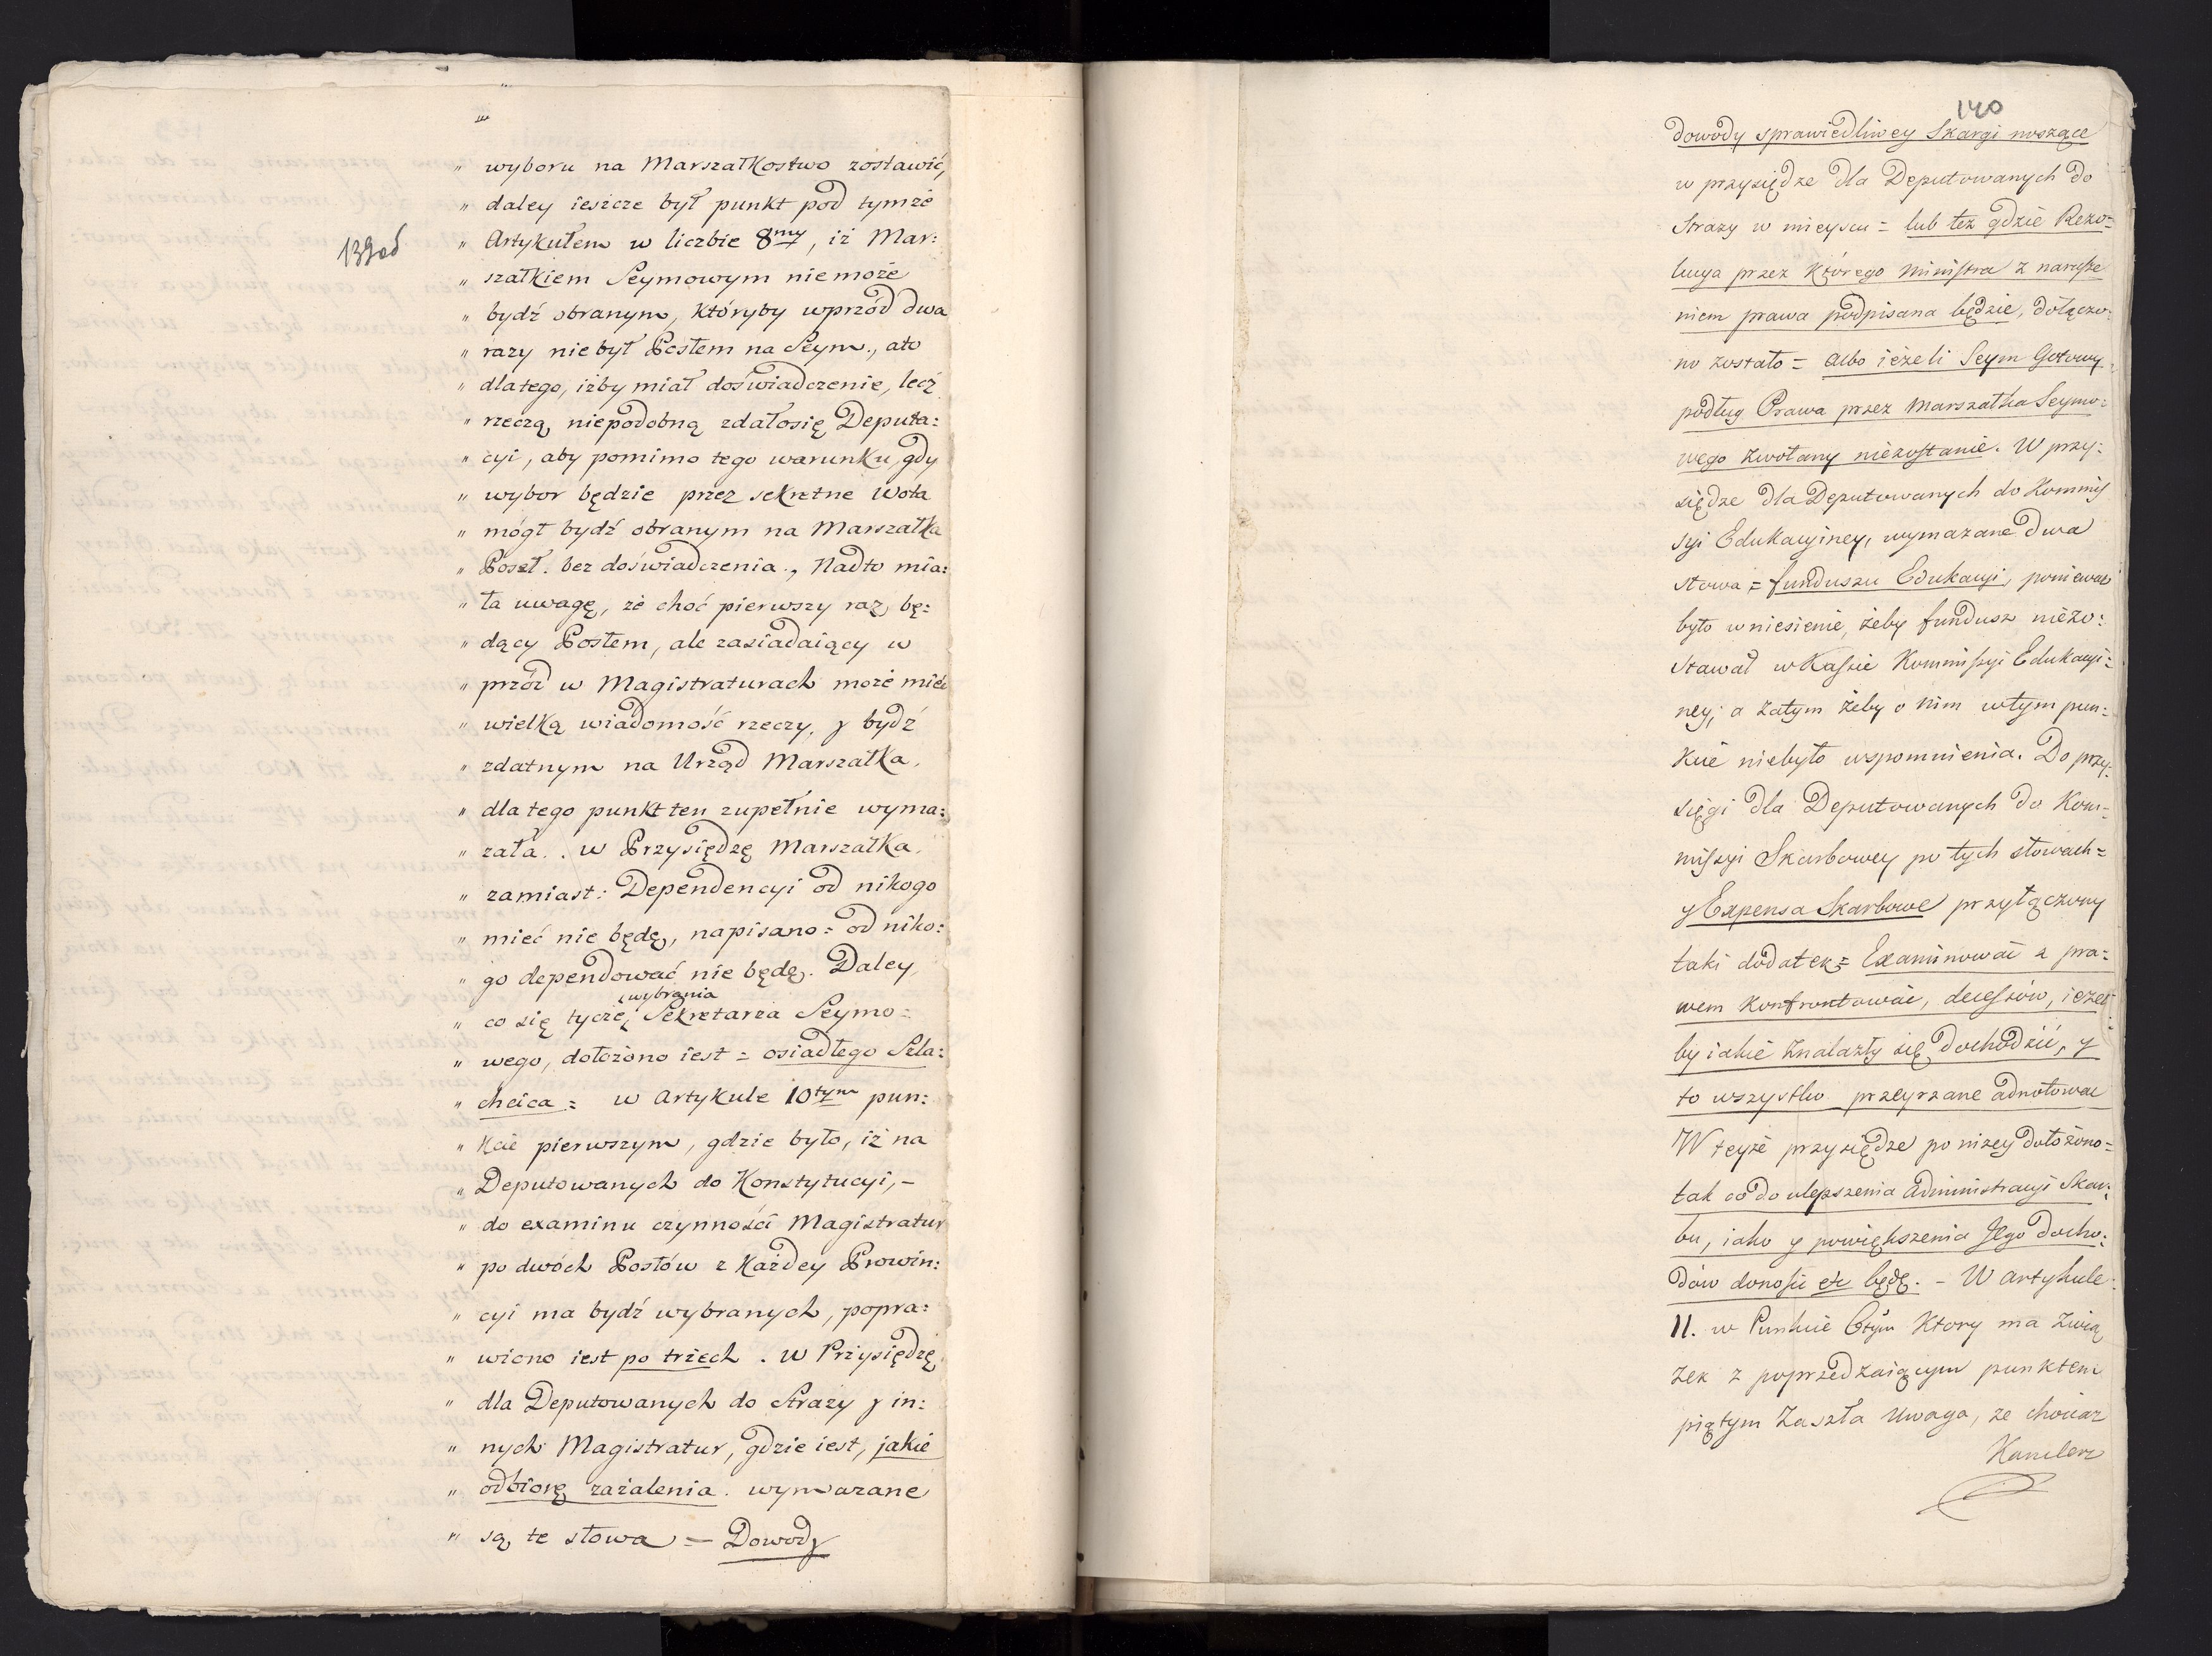 139od
„ wyboru na Marszałkostwo zostawić,
„ daley ieszcze był punkt pod tymże
„ Artykułem w liczbie 8my, iż Mar:
„ szałkiem Seymowym nie może
„ bydź obranym, któryby wprzód dwa
„ razy nie był Posłem na Seym., a to
„ dlatego, iżby miał doświadczenie, lecz
„ rzeczą niepodobną zdałosię Deputa:
„ cyi, aby pomimo tego warunku, gdy
„ wybor będzie przez sekretne wota
„ mógł bydź obranym na Marszałka
„ Poseł. bez doświadczenia., Nadto mia:
„ ła uwagę, że choć pierwszy raz bę:
„ dący Posłem, ale zasiadaiący w
„ przód w Magistraturach może mieć
„ wielką wiadomość rzeczy, y bydź
„ zdatnym na Urząd Marszałka.
„ dla tego punkt ten zupełnie wyma:
„ zała. . w Przysiędzę Marszałka.
„ zamiast: Dependencyi od nikogo
„ mieć nie będę, napisano = od niko:
„ go dependować nie będę. Daley
wybrania
„ co się tycze Sekretarza Seymo=
„ wego, dołożono iest = osiadłego Szla:
„ chcica = w Artykule 10tym pun:
„ kcie pierwszym, gdzie było, iż na
„ Deputowanych do Konstytucyi, –
„ do examinu czynności Magistratur
„ po dwóch Posłów z Każdey Prowin:
„ cyi ma bydź wybranych, popra:
„ wiono iest po trzech . w Przysiędzę
„ dla Deputowanych do Straży y in:
„ nych Magistratur, gdzie iest, jakie
„ odbiorę zażalenia. wymazane
„ są te słowa = Dowody
140
Dowody sprawiedliwey Skargi noszące
w przysiędze dla Deputowanych do
Straży w mieyscu = lub też gdzie Rezo=
lucya przez którego Ministra z narusze
niem prawa podpisana będzie, dołączo:
no zostało = albo ieżeli Seym Gotowy
podług Prawa przez Marszałka Seymo:
wego zwołany niezostanie. W przy:
siędze dla Deputowanych do Kommis
syi Edukacyiney, wymazane dwa
słowa = funduszu Edukacyi, ponieważ
było wniesienie, żeby fundusz niezo:
stawał w Kassie Kommissyi Edukacyi:
ney, a zatym żeby o nim w tym pun:
kcie niebyło wspomnienia. Do przy:
sięgi dla Deputowanych do Kom=
missyi Skarbowey po tych słowach=
y Expensa Skarbowe przyłączony
taki dodatek = Examinować z pra:
wem konfrontować, decessów, ieżeli
by iakie znalazły się, dochodzić, y
to wszystko przeyrzane adnotować
W teyże przysiędze poniżey dołożono=
tak co do ulepszenia Administracyi Skar:
bu, iako y powiększenia Jego docho:
dów donosić etc będę. – W Artykule
11. w Punkcie 6tym który ma zwią
zek z poprzedzaiącym punktem
piątym zaszła uwaga, że chociaż
Kanclerz